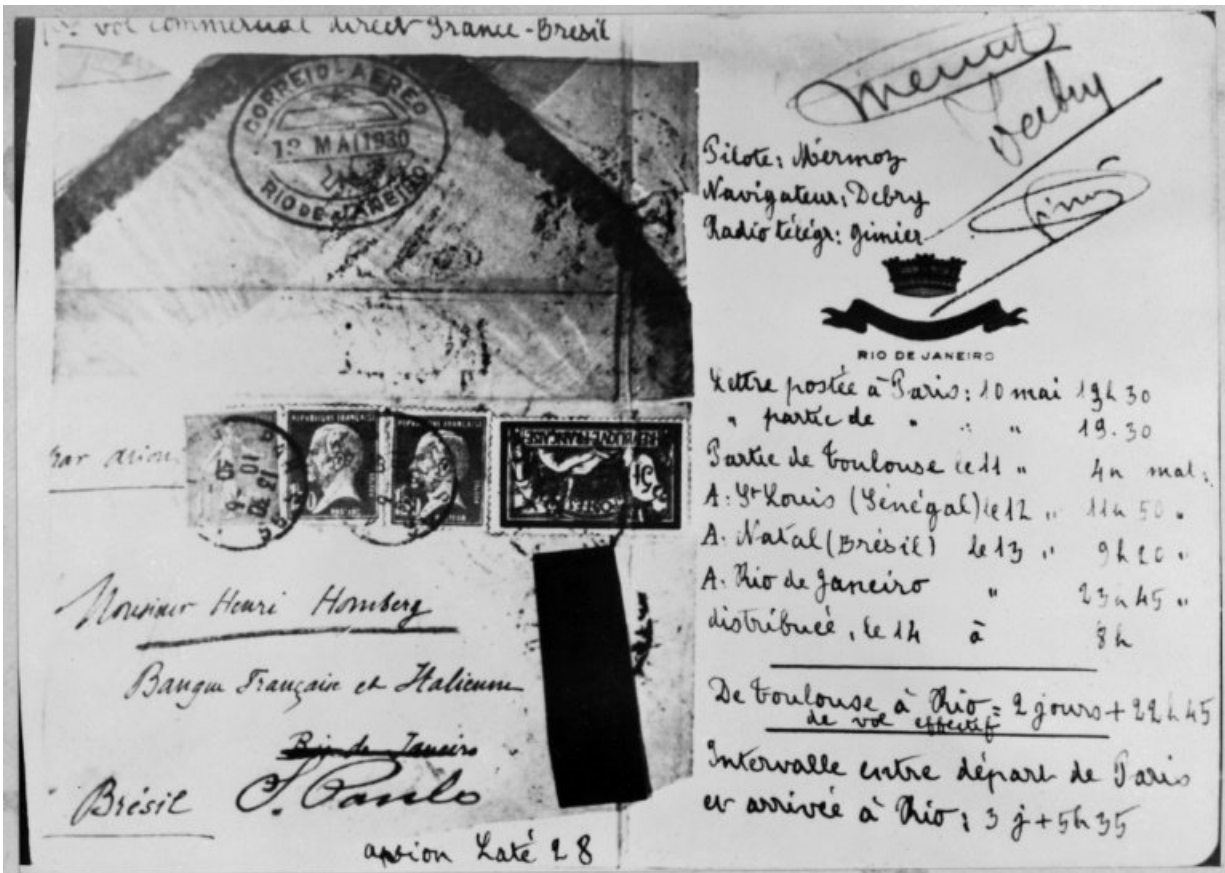 1er vol commercial direct France-Brésil
CORREIO-AEREO
13 MAI 1930
RIO DE JANEIRO
par avion
REPUBLIQUE FRANÇAISE
REPUBLIQUE FRANÇAISE
REPUBLIQUE FRANÇAISE
Monsieur Henri Homberg
Banque Française et Italienne
Rio de Janeiro
S. Paulo
Brésil
avion Laté 28
Debry
Gimié
Pilote: Mermoz
Navigateur: Debry
Radio télégr: Gimier
RIO DE JANEIRO
Lettre postée à Paris: 10 mai 19h 30
" partie de " " " 19.30
Partie de Toulouse le 11 " 4h mat:
A: St Louis (Sénégal) le 12 " 11h 50 "
A: Natal (Brésil) le 13 " 9h 20 "
A. Rio de Janeiro " 23h 45 "
distribuée, le 14 à 8h
De Toulouse à Rio = 2 jours + 22h 45
de vol effectif
Intervalle entre départ de Paris
et arrivée à Rio: 3 j + 5h 35